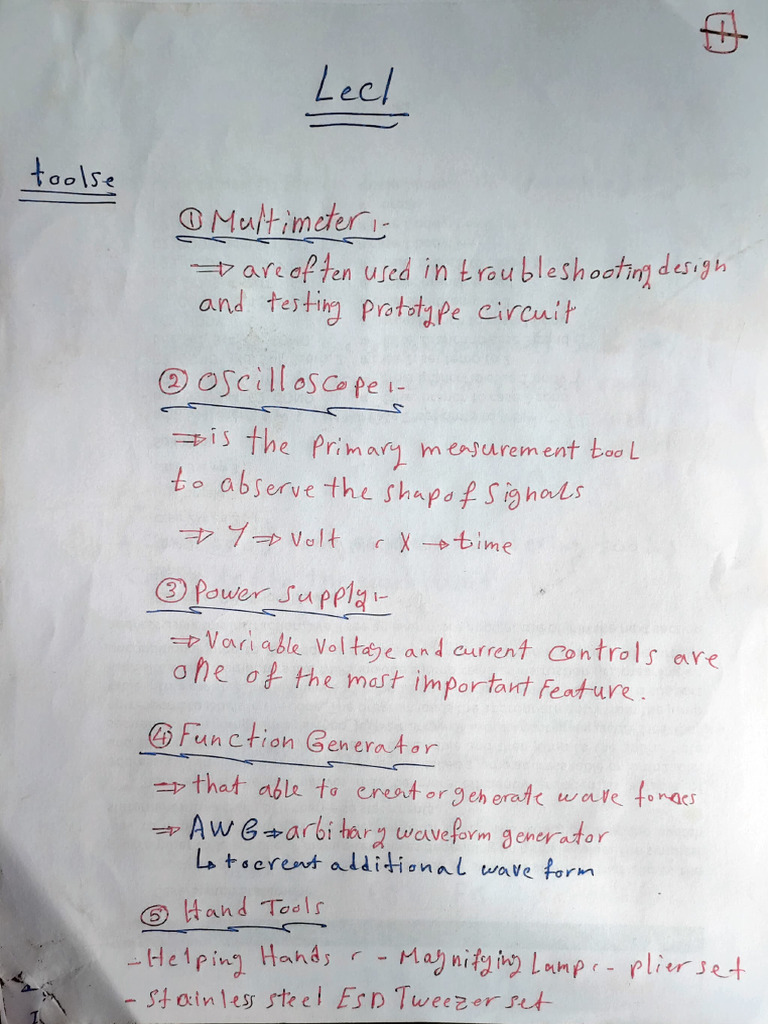 1
Lec1
toolse
① Multimeter :-
⇒ are often used in troubleshooting design
and testing prototype circuit
② Oscilloscope :-
⇒ is the primary measurement tool
to observe the shap of signals
⇒ Y ⇒ Volt , X → time
③ Power supply :-
⇒ Variable Voltage and current controls are
one of the most important Feature.
④ Function Generator
⇒ that able to creat or generate wave formes
⇒ AWG ⇒ arbitrary waveform generator
↳ to creat additional wave form
⑤ Hand Tools
- Helping Hands , - Magnifying Lamp , - plier set
- Stainless steel ESD Tweezer set